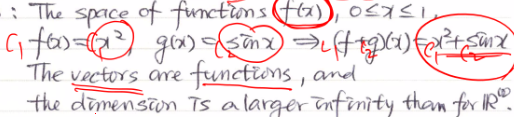 : The space of functions f(x), 0≤x≤1,
C₁ f(x)=C₁x², g(x)=C₂sinx ⇒ (f+g)(x)=C₁x²+C₂sinx
The vectors are functions, and
the dimension is a larger infinity than for ℝ^∞.